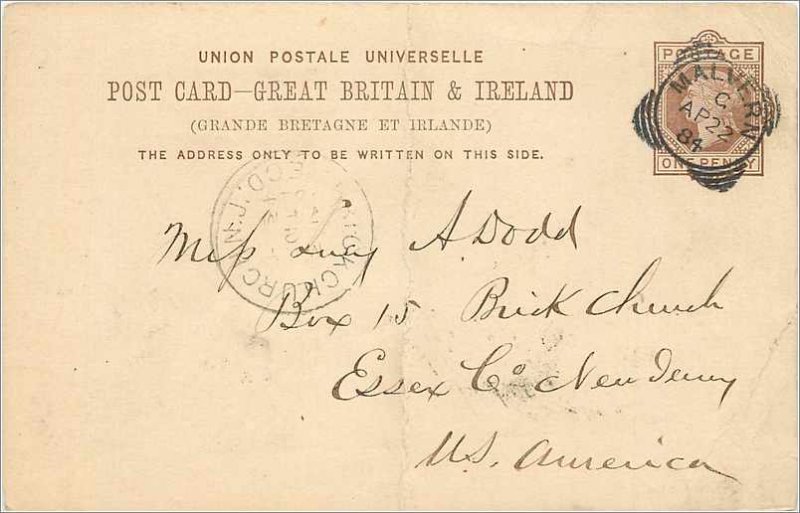 UNION POSTALE UNIVERSELLE
POST CARD—GREAT BRITAIN & IRELAND
(GRANDE BRETAGNE ET IRLANDE)
THE ADDRESS ONLY TO BE WRITTEN ON THIS SIDE.
POSTAGE
ONE PENNY
MALVERN
C
AP22
84
BRICK CHURCH N.J.
Miss Lucy A. Dodd
Box 15 Brick Church
Essex Co New Jersey
U.S. America